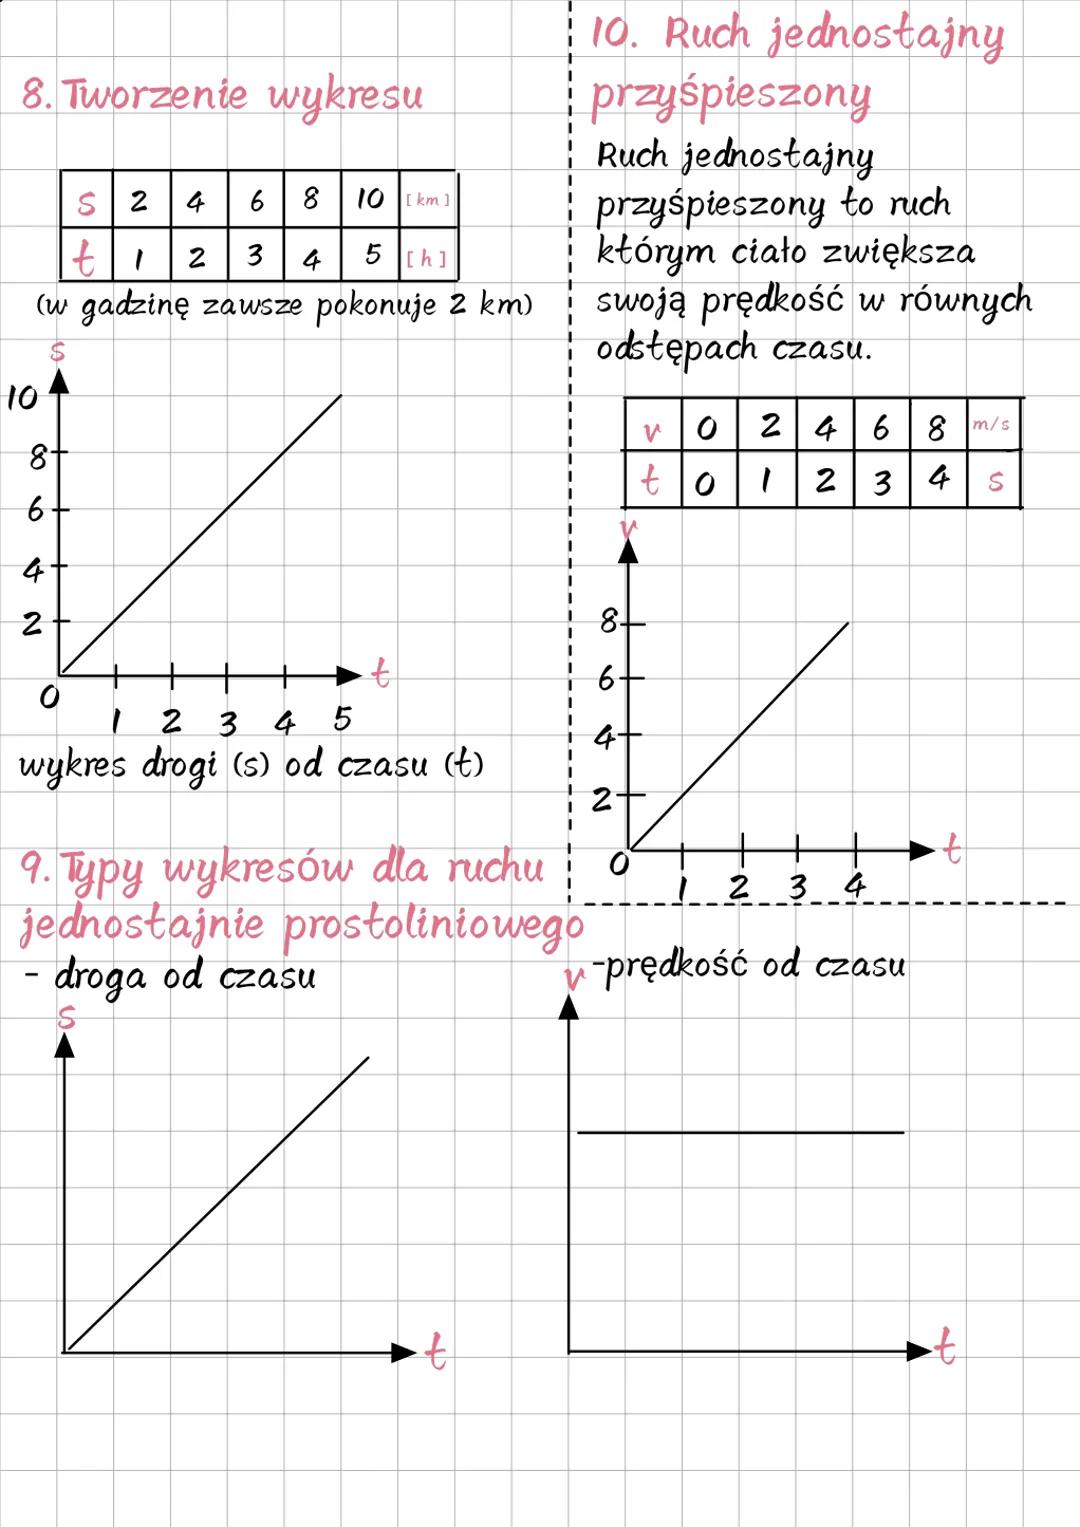 8. Tworzenie wykresu
s 2 4 6 8 10 [km]
t 1 2 3 4 5 [h]
(w gadzinę zawsze pokonuje 2 km)
s
10
8
6
4
2
0
1 2 3 4 5
t
wykres drogi (s) od czasu (t)
9. Typy wykresów dla ruchu
jednostajnie prostoliniowego
- droga od czasu
s
t
10. Ruch jednostajny
przyśpieszony
Ruch jednostajny
przyśpieszony to ruch
którym ciało zwiększa
swoją prędkość w równych
odstępach czasu.
v 0 2 4 6 8 m/s
t 0 1 2 3 4 s
v
8
6
4
2
0
1 2 3 4
t
-prędkość od czasu
v
t